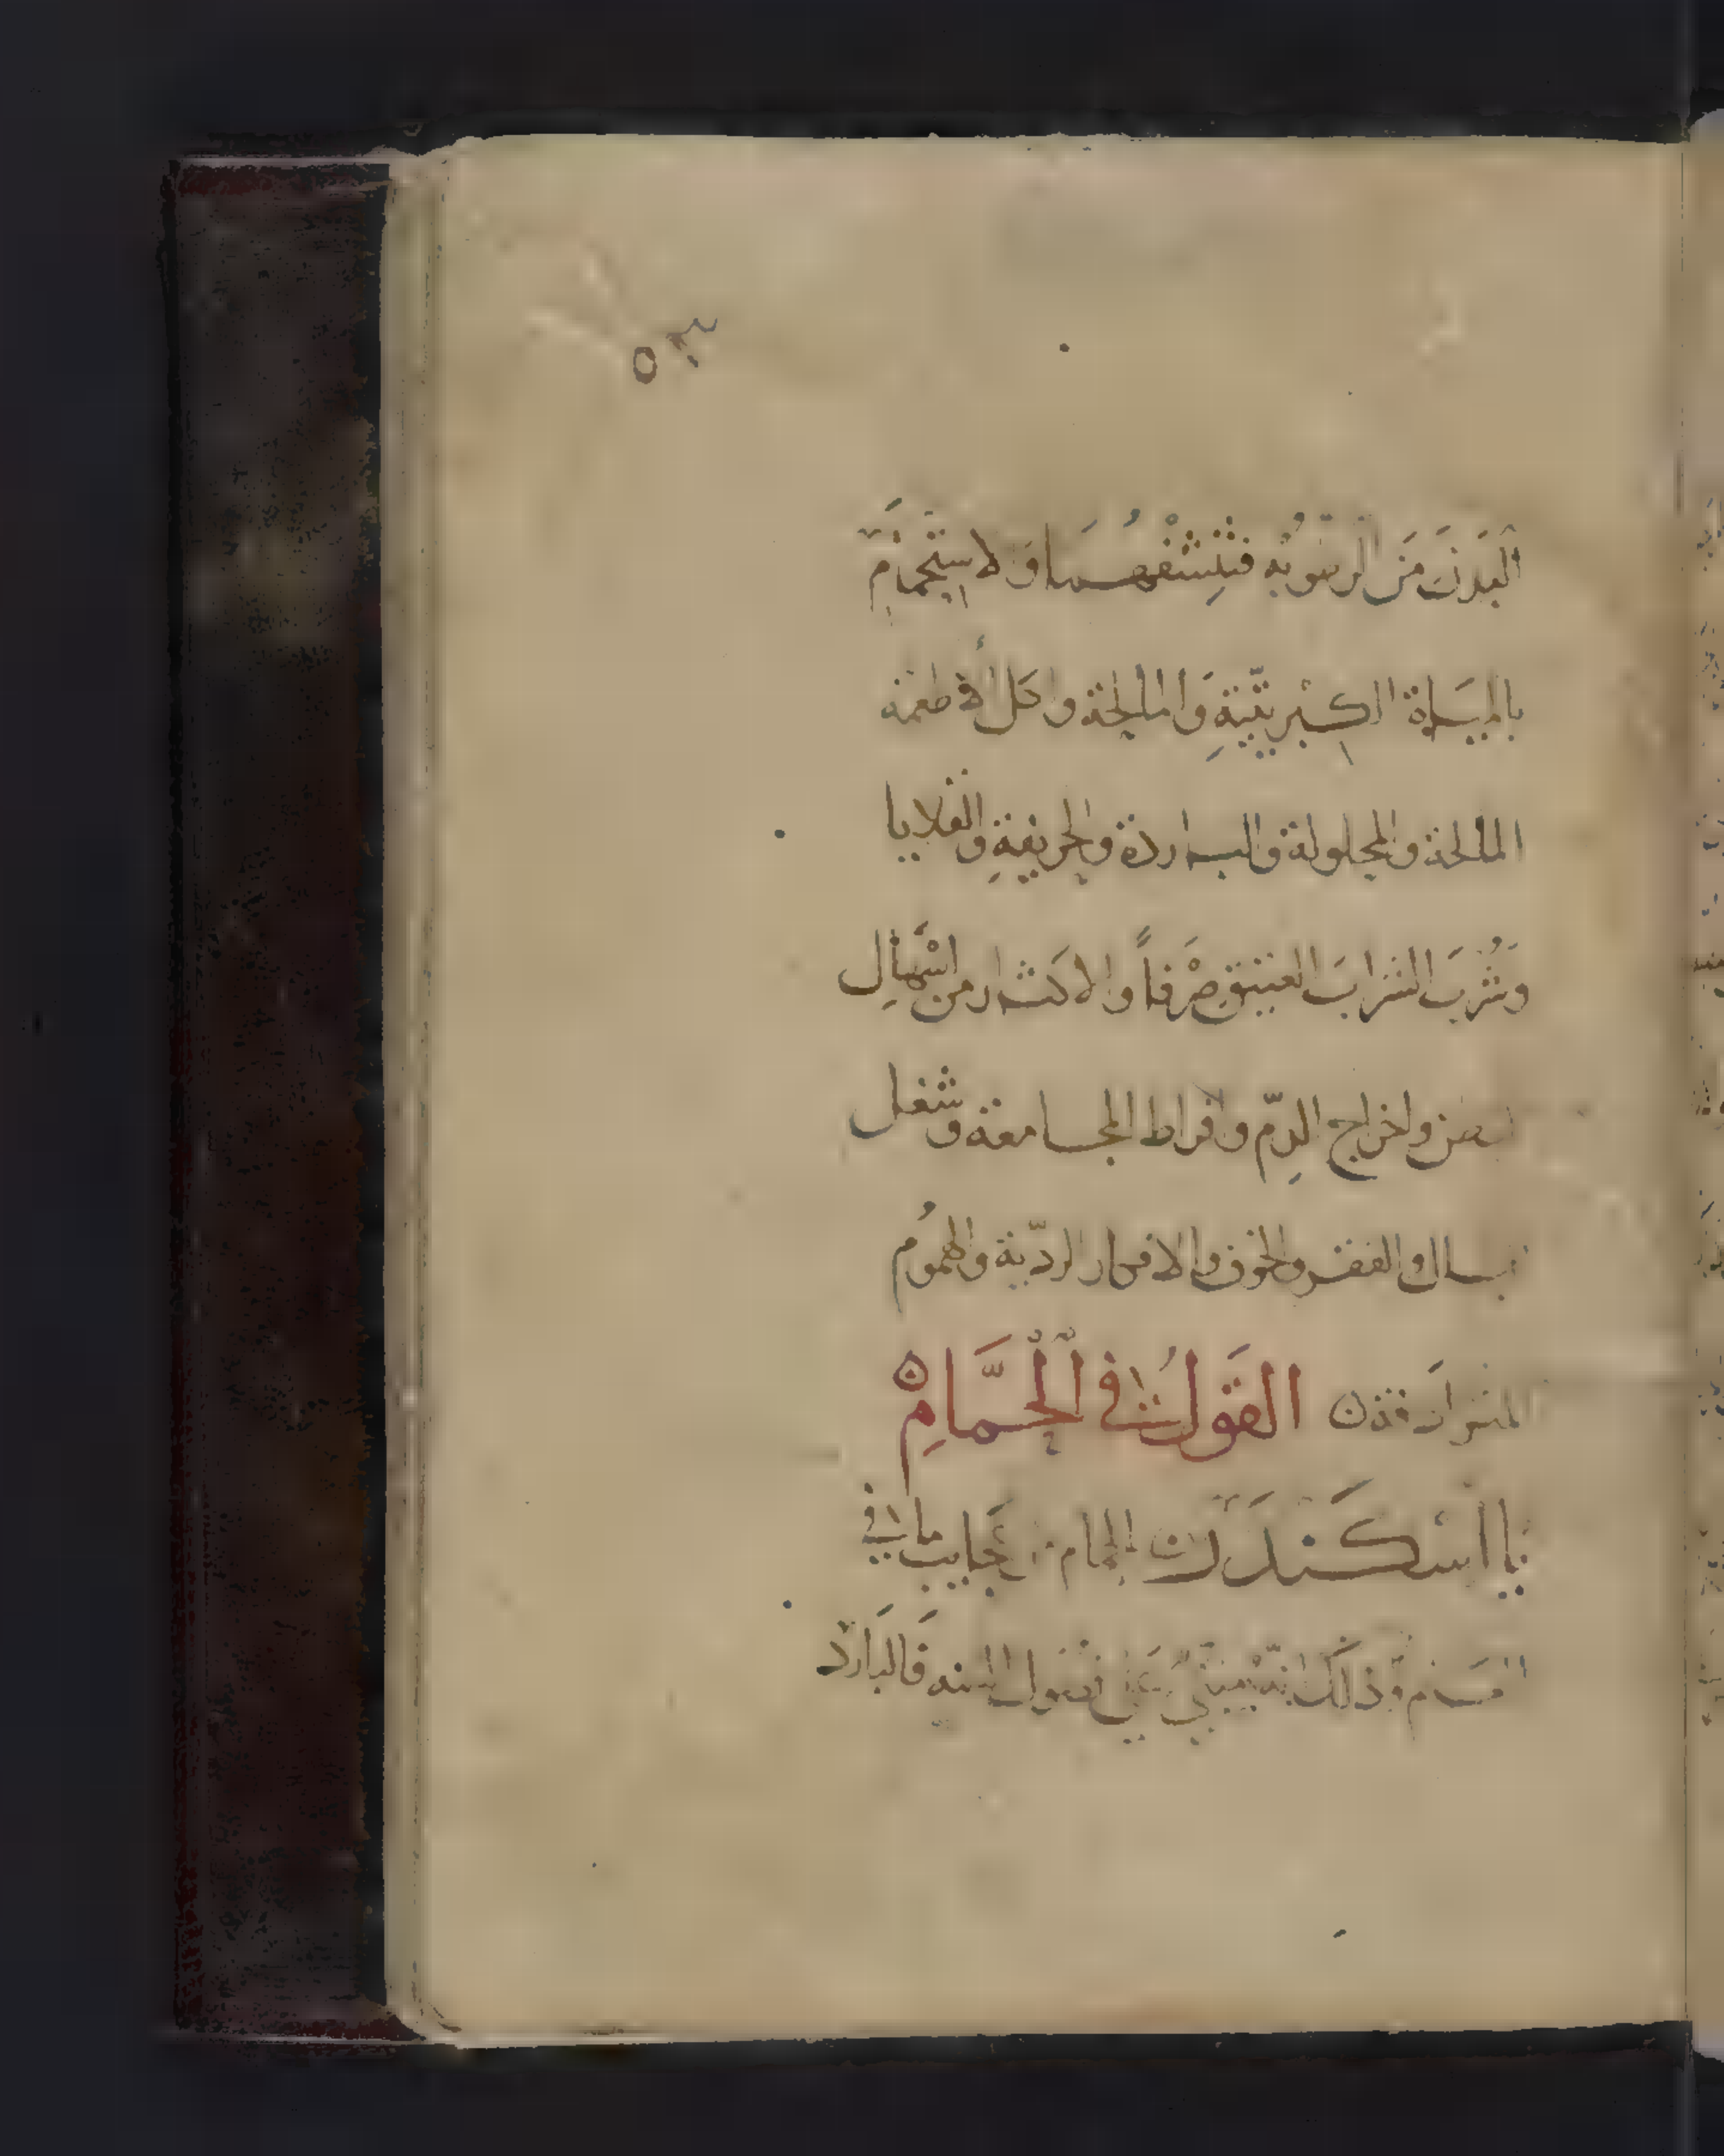 ٥٣
البدن من الرطوبه فينشفهما والاستحمام
بالمياة الكبريتية والمالحة واكل الاطعمة
المالحة والمحلولة والباردة والحريفة والقلايا
وشرب الشراب العتيق صرفاً والاكثار من اسهال
البطن واخراج الدم وافراط المجامعة وشغل
البال والفقر والخوف والافكار الرديّة والهموم
المترادفة القول في الحمام
يا اسكندر ان الحمام من عجايب ما في
وذلك انه مبني على فصول السنه فالبارد